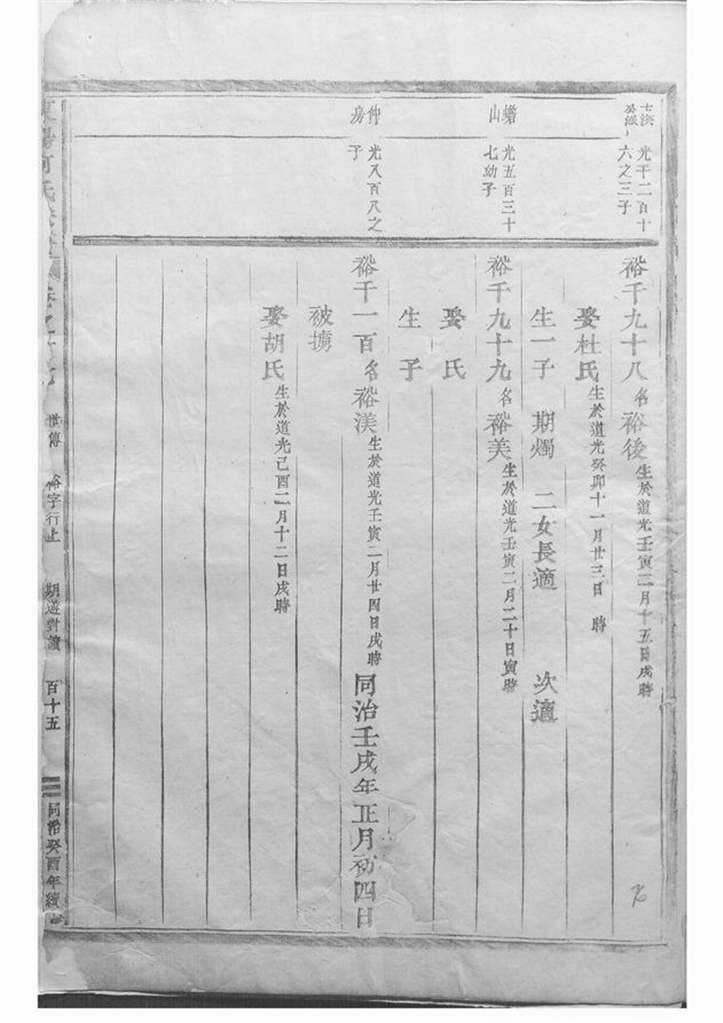 光千二百十
六之三子
裕千九十八名裕後生於道光壬寅二月十五日戌時
娶杜氏生於道光癸卯十一月廿三日 時
生一子 期燭 二女長適 次適
蟾山
光五百三十
七幼子
裕千九十九名裕美生於道光壬寅二月二十日寅時
娶 氏
生 子
仲房
光八百八之
子
裕千一百名裕渼生於道光壬寅二月廿四日戌時同治壬戌年正月初四日
被擄
娶胡氏生於道光己酉二月十二日戌時
世傳 裕字行上 期遊對讀 百十五 同治癸酉年續修